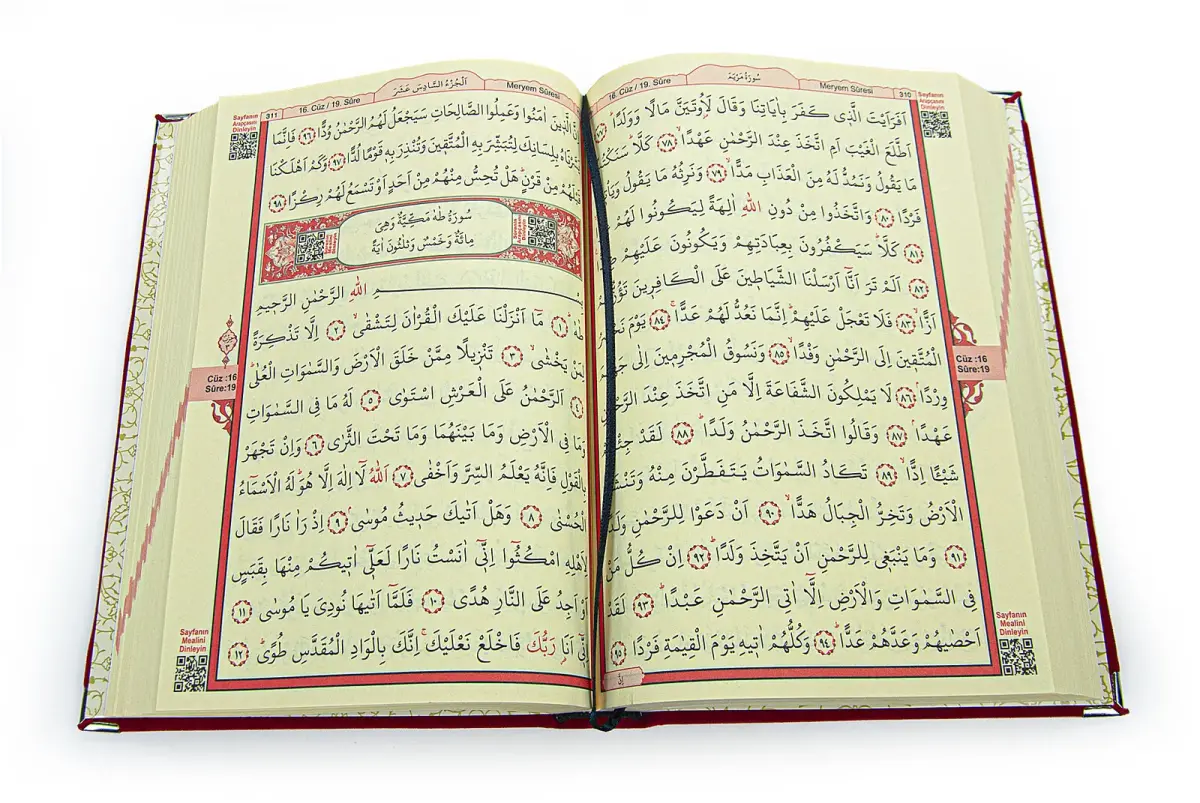 سُورَةُ مَرْيَمَ
16. Cüz / 19. Sûre
Meryem Sûresi
310
Sayfanın
Arapçasını
Dinleyin
اَفَرَاَيْتَ الَّذٖى كَفَرَ بِاٰيَاتِنَا وَقَالَ لَاُوتَيَنَّ مَالًا وَوَلَدًا ﴿٧٧﴾
اَطَّلَعَ الْغَيْبَ اَمِ اتَّخَذَ عِنْدَ الرَّحْمٰنِ عَهْدًا ﴿٧٨﴾ كَلَّا سَنَكْتُبُ
مَا يَقُولُ وَنَمُدُّ لَهُ مِنَ الْعَذَابِ مَدًّا ﴿٧٩﴾ وَنَرِثُهُ مَا يَقُولُ وَيَاْتٖينَا
فَرْدًا ﴿٨٠﴾ وَاتَّخَذُوا مِنْ دُونِ اللّٰهِ اٰلِهَةً لِيَكُونُوا لَهُمْ
﴿٨١﴾ كَلَّا سَيَكْفُرُونَ بِعِبَادَتِهِمْ وَيَكُونُونَ عَلَيْهِمْ
﴿٨٢﴾ اَلَمْ تَرَ اَنَّا اَرْسَلْنَا الشَّيَاطٖينَ عَلَى الْكَافِرٖينَ تَؤُزُّهُمْ
اَزًّا ﴿٨٣﴾ فَلَا تَعْجَلْ عَلَيْهِمْ اِنَّمَا نَعُدُّ لَهُمْ عَدًّا ﴿٨٤﴾ يَوْمَ نَحْشُرُ
الْمُتَّقٖينَ اِلَى الرَّحْمٰنِ وَفْدًا ﴿٨٥﴾ وَنَسُوقُ الْمُجْرِمٖينَ اِلٰى جَهَنَّمَ
وِرْدًا ﴿٨٦﴾ لَا يَمْلِكُونَ الشَّفَاعَةَ اِلَّا مَنِ اتَّخَذَ عِنْدَ الرَّحْمٰنِ
عَهْدًا ﴿٨٧﴾ وَقَالُوا اتَّخَذَ الرَّحْمٰنُ وَلَدًا ﴿٨٨﴾ لَقَدْ جِئْتُمْ
شَيْـًٔا اِدًّا ﴿٨٩﴾ تَكَادُ السَّمٰوَاتُ يَتَفَطَّرْنَ مِنْهُ وَتَنْشَقُّ
الْاَرْضُ وَتَخِرُّ الْجِبَالُ هَدًّا ﴿٩٠﴾ اَنْ دَعَوْا لِلرَّحْمٰنِ وَلَدًا
﴿٩١﴾ وَمَا يَنْبَغٖى لِلرَّحْمٰنِ اَنْ يَتَّخِذَ وَلَدًا ﴿٩٢﴾ اِنْ كُلُّ مَنْ
فِى السَّمٰوَاتِ وَالْاَرْضِ اِلَّا اٰتِى الرَّحْمٰنِ عَبْدًا ﴿٩٣﴾ لَقَدْ
اَحْصٰيهُمْ وَعَدَّهُمْ عَدًّا ﴿٩٤﴾ وَكُلُّهُمْ اٰتٖيهِ يَوْمَ الْقِيٰمَةِ فَرْدًا ﴿٩٥﴾
اِنَّ
Cüz :16
Sûre:19
Sayfanın
Mealini
Dinleyin
اَلْجُزْءُ السَّادِسَ عَشَرَ
311
16. Cüz / 19. Sûre
Meryem Sûresi
Sayfanın
Arapçasını
Dinleyin
اِنَّ الَّذٖينَ اٰمَنُوا وَعَمِلُوا الصَّالِحَاتِ سَيَجْعَلُ لَهُمُ الرَّحْمٰنُ وُدًّا ﴿٩٦﴾ فَاِنَّمَا
يَسَّرْنَاهُ بِلِسَانِكَ لِتُبَشِّرَ بِهِ الْمُتَّقٖينَ وَتُنْذِرَ بِهٖ قَوْمًا لُدًّا ﴿٩٧﴾ وَكَمْ اَهْلَكْنَا
قَبْلَهُمْ مِنْ قَرْنٍ هَلْ تُحِسُّ مِنْهُمْ مِنْ اَحَدٍ اَوْ تَسْمَعُ لَهُمْ رِكْزًا ﴿٩٨﴾
سُورَةُ طٰهٰ مَكِّيَّةٌ وَهِىَ
مِائَةٌ وَخَمْسٌ وَثَلٰثُونَ اٰيَةً
بِسْمِ اللّٰهِ الرَّحْمٰنِ الرَّحٖيمِ
طٰهٰ ﴿١﴾ مَا اَنْزَلْنَا عَلَيْكَ الْقُرْاٰنَ لِتَشْقٰى ﴿٢﴾ اِلَّا تَذْكِرَةً
لِمَنْ يَخْشٰى ﴿٣﴾ تَنْزٖيلًا مِمَّنْ خَلَقَ الْاَرْضَ وَالسَّمٰوَاتِ الْعُلٰى
﴿٤﴾ اَلرَّحْمٰنُ عَلَى الْعَرْشِ اسْتَوٰى ﴿٥﴾ لَهُ مَا فِى السَّمٰوَاتِ
وَمَا فِى الْاَرْضِ وَمَا بَيْنَهُمَا وَمَا تَحْتَ الثَّرٰى ﴿٦﴾ وَاِنْ تَجْهَرْ
بِالْقَوْلِ فَاِنَّهُ يَعْلَمُ السِّرَّ وَاَخْفٰى ﴿٧﴾ اَللّٰهُ لَا اِلٰهَ اِلَّا هُوَ لَهُ الْاَسْمَاءُ
الْحُسْنٰى ﴿٨﴾ وَهَلْ اَتٰيكَ حَدٖيثُ مُوسٰى ﴿٩﴾ اِذْ رَاٰ نَارًا فَقَالَ
لِاَهْلِهِ امْكُثُوا اِنّٖى اٰنَسْتُ نَارًا لَعَلّٖى اٰتٖيكُمْ مِنْهَا بِقَبَسٍ
اَوْ اَجِدُ عَلَى النَّارِ هُدًى ﴿١٠﴾ فَلَمَّا اَتٰيهَا نُودِىَ يَا مُوسٰى ﴿١١﴾
اِنّٖى اَنَا رَبُّكَ فَاخْلَعْ نَعْلَيْكَ اِنَّكَ بِالْوَادِ الْمُقَدَّسِ طُوًى ﴿١٢﴾
Cüz :16
Sûre:19
Sayfanın
Mealini
Dinleyin